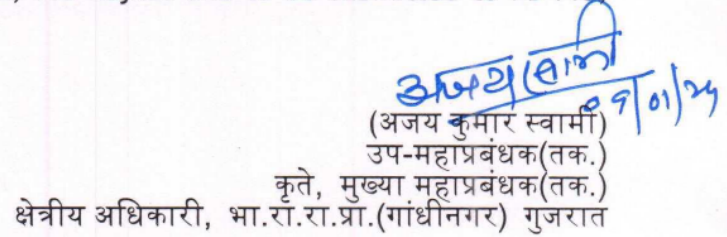 अजय स्वामी
09/01/25
(अजय कुमार स्वामी)
उप-महाप्रबंधक(तक.)
कृते, मुख्या महाप्रबंधक(तक.)
क्षेत्रीय अधिकारी, भा.रा.रा.प्रा.(गांधीनगर) गुजरात